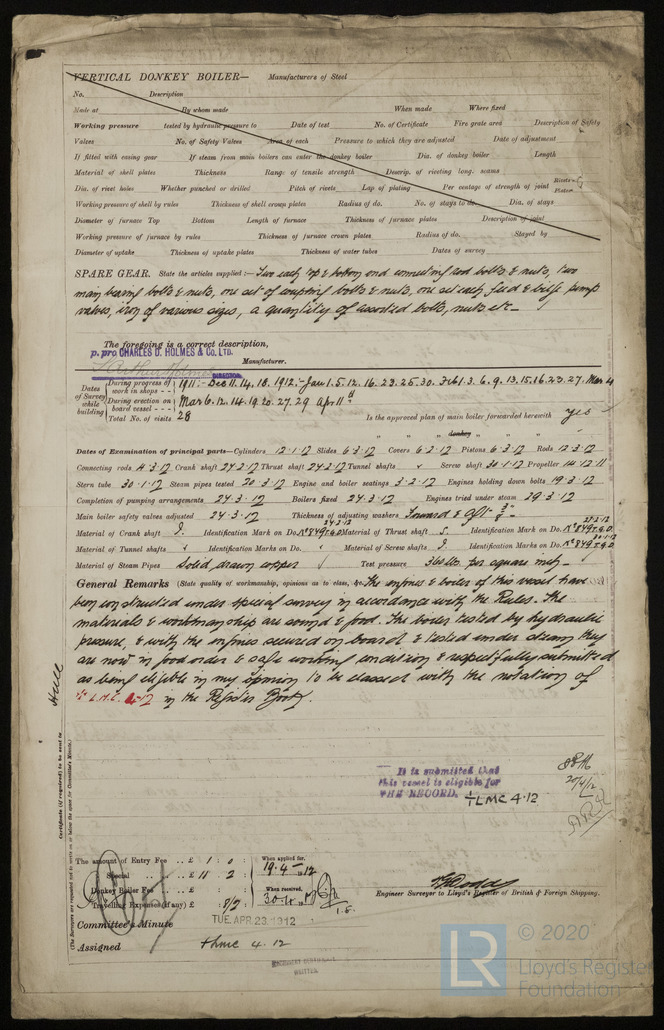 VERTICAL DONKEY BOILER— Manufacturers of Steel
No. Description
Made at By whom made When made Where fixed
Working pressure tested by hydraulic pressure to Date of test No. of Certificate Fire grate area Description of Safety
Valves No. of Safety Valves Area of each Pressure to which they are adjusted Date of adjustment
If fitted with easing gear If steam from main boilers can enter the donkey boiler Dia. of donkey boiler Length
Material of shell plates Thickness Range of tensile strength Descrip. of riveting long. seams
Dia. of rivet holes Whether punched or drilled Pitch of rivets Lap of plating Per centage of strength of joint Rivets Plates
Working pressure of shell by rules Thickness of shell crown plates Radius of do. No. of stays to do. Dia. of stays
Diameter of furnace Top Bottom Length of furnace Thickness of furnace plates Description of joint
Working pressure of furnace by rules Thickness of furnace crown plates Radius of do. Stayed by
Diameter of uptake Thickness of uptake plates Thickness of water tubes Dates of survey
SPARE GEAR. State the articles supplied :— Two each top & bottom end connecting rod bolts & nuts, two
main bearing bolts & nuts, one set of coupling bolts & nuts, one set each feed & bilge pump
valves, iron of various sizes, a quantity of assorted bolts, nuts etc—
The foregoing is a correct description,
p. pro CHARLES D. HOLMES & Co. LTD.
DIRECTOR Manufacturer.
Dates of Survey while building
During progress of work in shops - - 1911:- Dec 11. 14. 18. 1912:- Jan 1. 5. 12. 16. 23. 25. 30. Feb 1. 3. 6. 9. 13. 15. 16. 23. 27. Mar 4
During erection on board vessel - - - Mar 6. 12. 14. 19. 20. 27. 29 April 1st
Total No. of visits 28 Is the approved plan of main boiler forwarded herewith yes
" " donkey " " "
Dates of Examination of principal parts—Cylinders 12.1.12 Slides 6.3.12 Covers 6.2.12 Pistons 6.3.12 Rods 12.3.12
Connecting rods 4.3.12 Crank shaft 27.2.12 Thrust shaft 27.2.12 Tunnel shafts Screw shaft 30.1.12 Propeller 14.12.11
Stern tube 30.1.12 Steam pipes tested 20.3.12 Engine and boiler seatings 3.2.12 Engines holding down bolts 19.3.12
Completion of pumping arrangements 27.3.12 Boilers fixed 27.3.12 Engines tried under steam 29.3.12
Main boiler safety valves adjusted 27.3.12 Thickness of adjusting washers Forward & Aft
Material of Crank shaft I. Identification Mark on Do. No 849 Material of Thrust shaft Identification Mark on Do. No 849
Material of Tunnel shafts Identification Marks on Do. Material of Screw shafts Identification Marks on Do. No 849
Material of Steam Pipes Solid drawn copper Test pressure 360 lbs. per square inch—
General Remarks (State quality of workmanship, opinions as to class, &c. The engines & boiler of this vessel have
been constructed under special survey in accordance with the Rules. The
materials & workmanship are sound & good. The boiler tested by hydraulic
pressure, & with the engines secured on board & tested under steam they
are now in good order & safe working condition & respectfully submitted
as being eligible in my opinion to be classed with the notation of
L.M.C. 4-12 in the Register Book.
Hull
Certificate (if required) to be sent to
(The Surveyors are requested not to write on or below the space for Committee's Minute.)
It is submitted that
this vessel is eligible for
THE RECORD. + LMC 4.12
20/4/12
The amount of Entry Fee .. £ 1 : 0 : When applied for,
Special .. .. £ 11 : 2 : 19.4.1912
Donkey Boiler Fee .. £ : : When received,
Travelling Expenses (if any) £ : 8/2 : 30.4.
Engineer Surveyor to Lloyd's Register of British & Foreign Shipping.
Committee's Minute TUE. APR. 23. 1912
Assigned + LMC 4.12
MACHINERY CERTIFICATE
WRITTEN
LR
© 2020
Lloyd's Register
Foundation